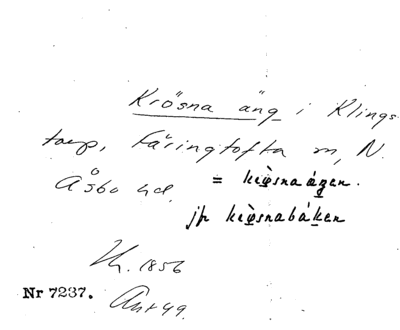 Krösna äng i Klings-
torp, Färingtofta m, N.
Åsbo hd. = krösnaáŋen.
jfr krösnabáken
1856
Nr 7237.